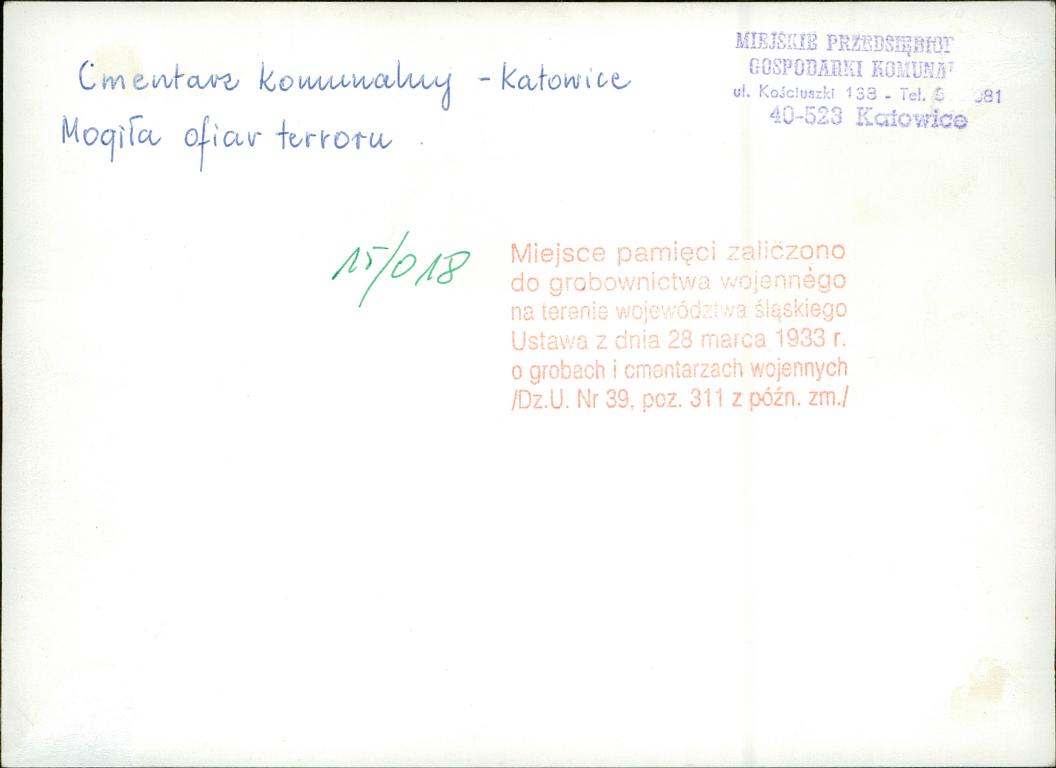 Cmentarz komunalny - Katowice
Mogiła ofiar terroru
MIEJSKIE PRZEDSIĘBIOR
GOSPODARKI KOMUNA
ul. Kościuszki 138 - Tel. 5 081
40-523 Katowice
15/018
Miejsce pamięci zaliczono
do grobownictwa wojennego
na terenie województwa śląskiego
Ustawa z dnia 28 marca 1933 r.
o grobach i cmentarzach wojennych
/Dz.U. Nr 39, poz. 311 z późn. zm./